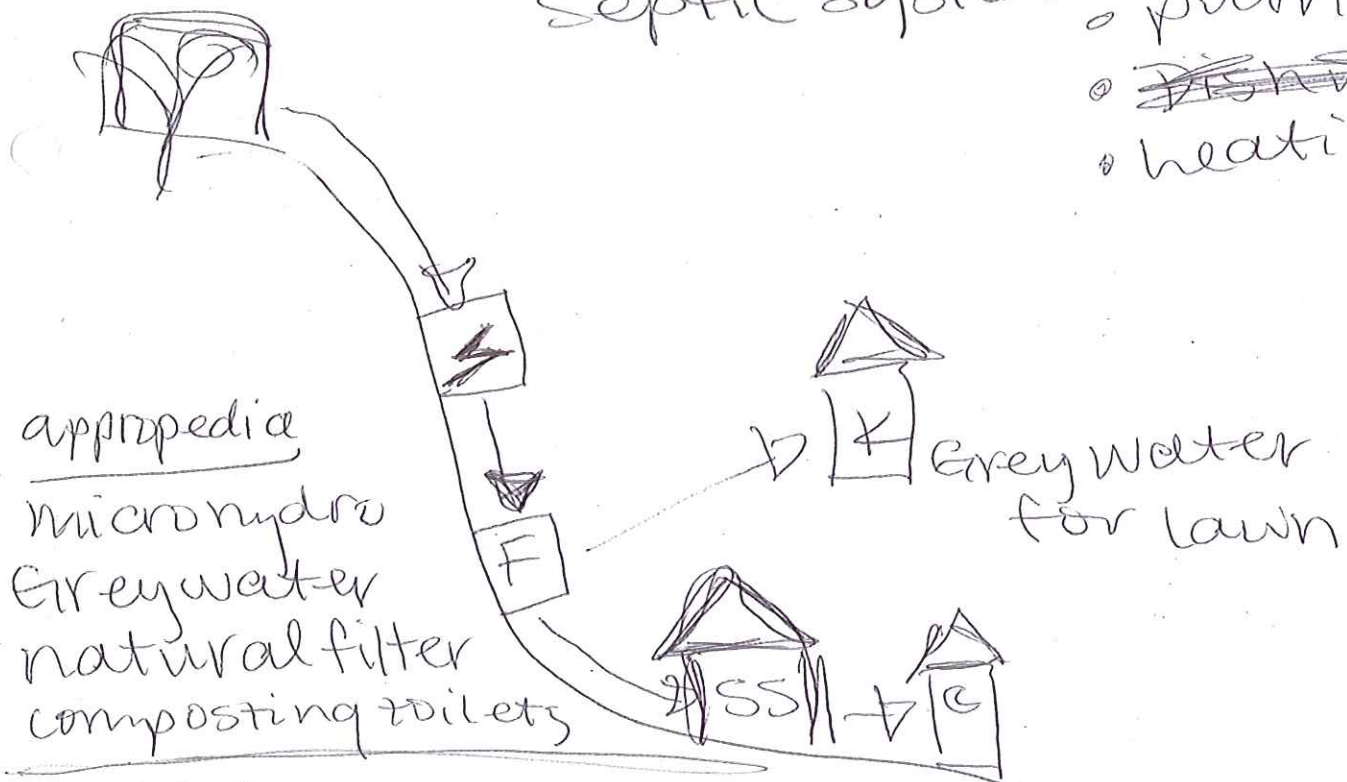 septic
heati
appropedia
microhydro
Greywater
natural filter
composting toilets
F
K
Grey Water
for lawn
SS
C